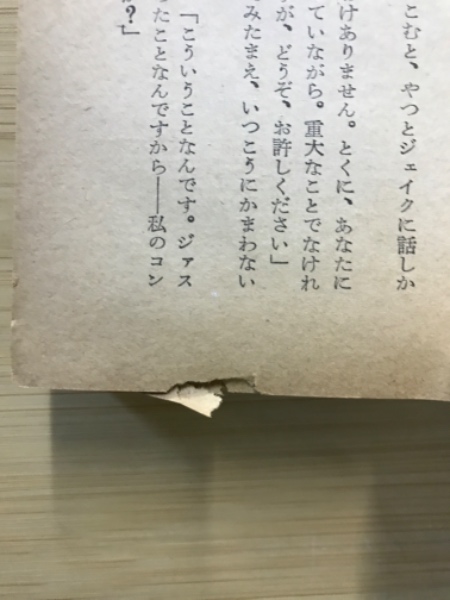 こむと、やつとジェイクに話しか
けありません。とくに、あなたに
ていながら。重大なことでなけれ
が、どうぞ、お許しください」
みたまえ、いつこうにかまわない
「こういうことなんです。ジァス
たことなんですから――私のコン
？」